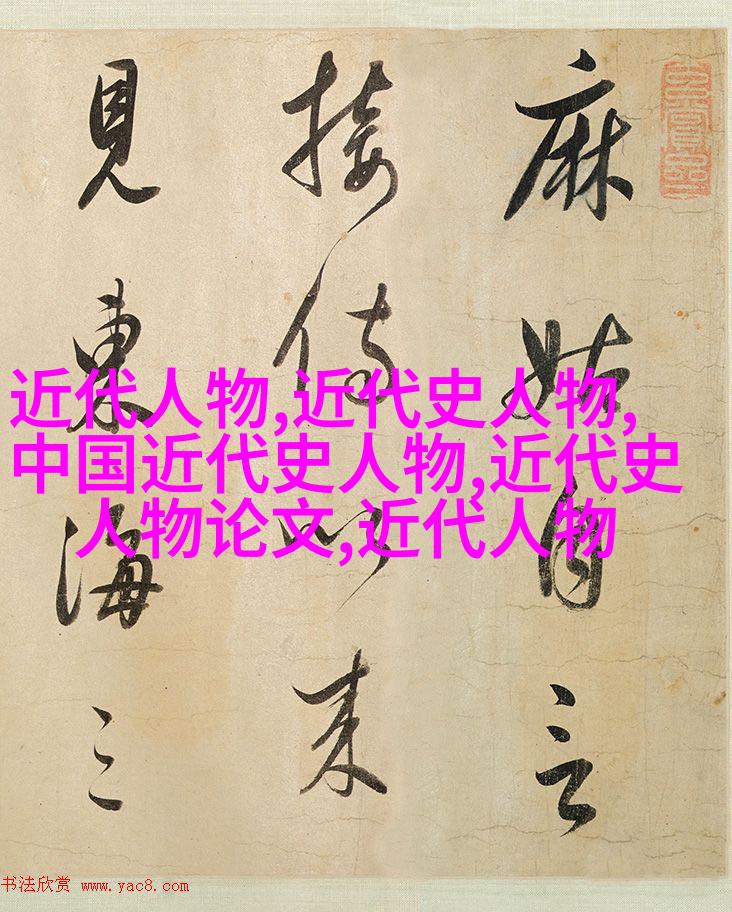 麻姑自言
接侍以来
見東海三
近代人物,近代史人物,
中国近代史人物,近代史
人物论文,近代人物
书法欣赏 www.yac8.com